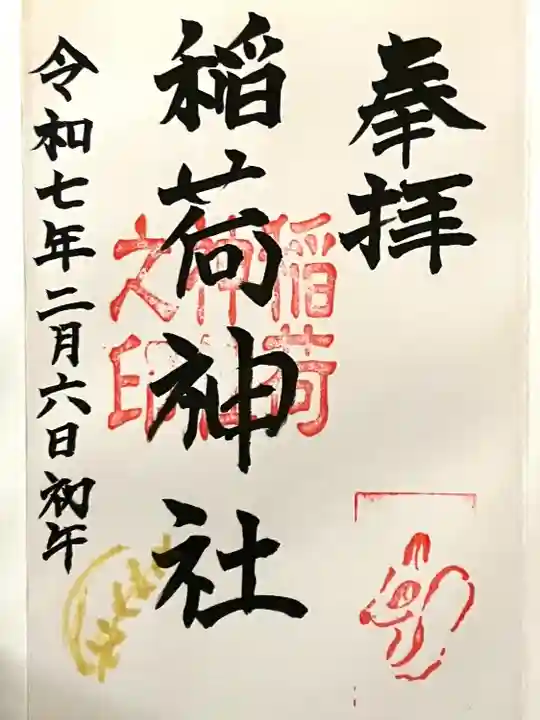 奉拝
稲荷神社
稲荷
神社
之印
令和七年二月六日初午